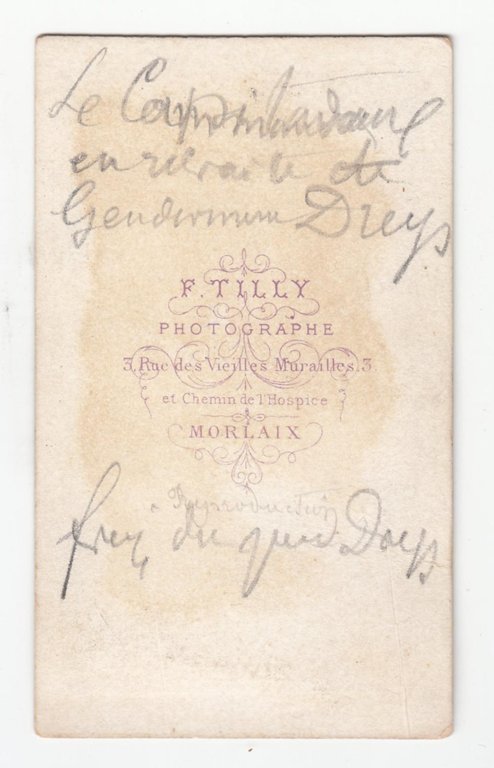 Le
en retraite de
Gendarmerie Dreys
F. TILLY
PHOTOGRAPHE
3, Rue des Vieilles Murailles. 3
et Chemin de l'Hospice
MORLAIX
Reproduction
du Dreys